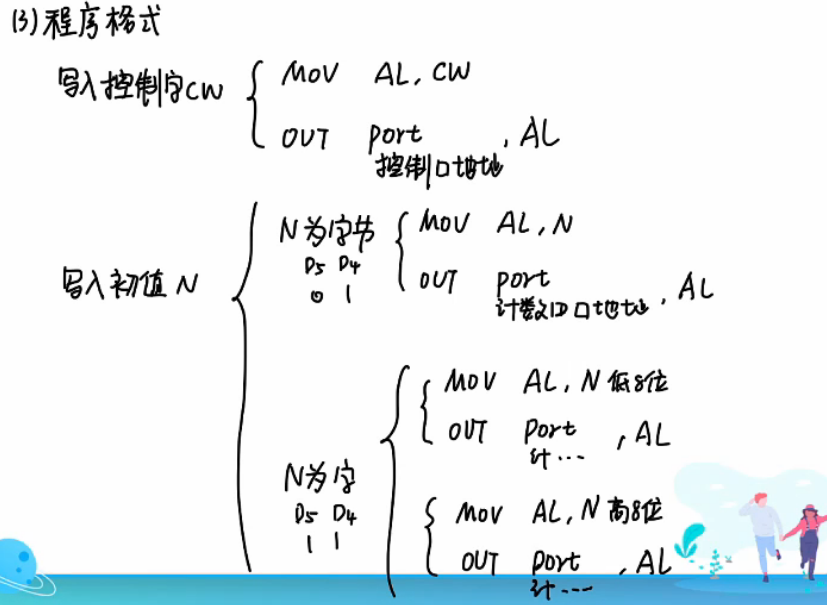 (3)程序格式
写入控制字CW
MOV AL, CW
OUT port , AL
控制口地址
写入初值 N
N为字节
D5 D4
0 1
MOV AL, N
OUT port , AL
计数口地址
N为字
D5 D4
1 1
MOV AL, N 低8位
OUT port , AL
计…
MOV AL, N 高8位
OUT port , AL
计…